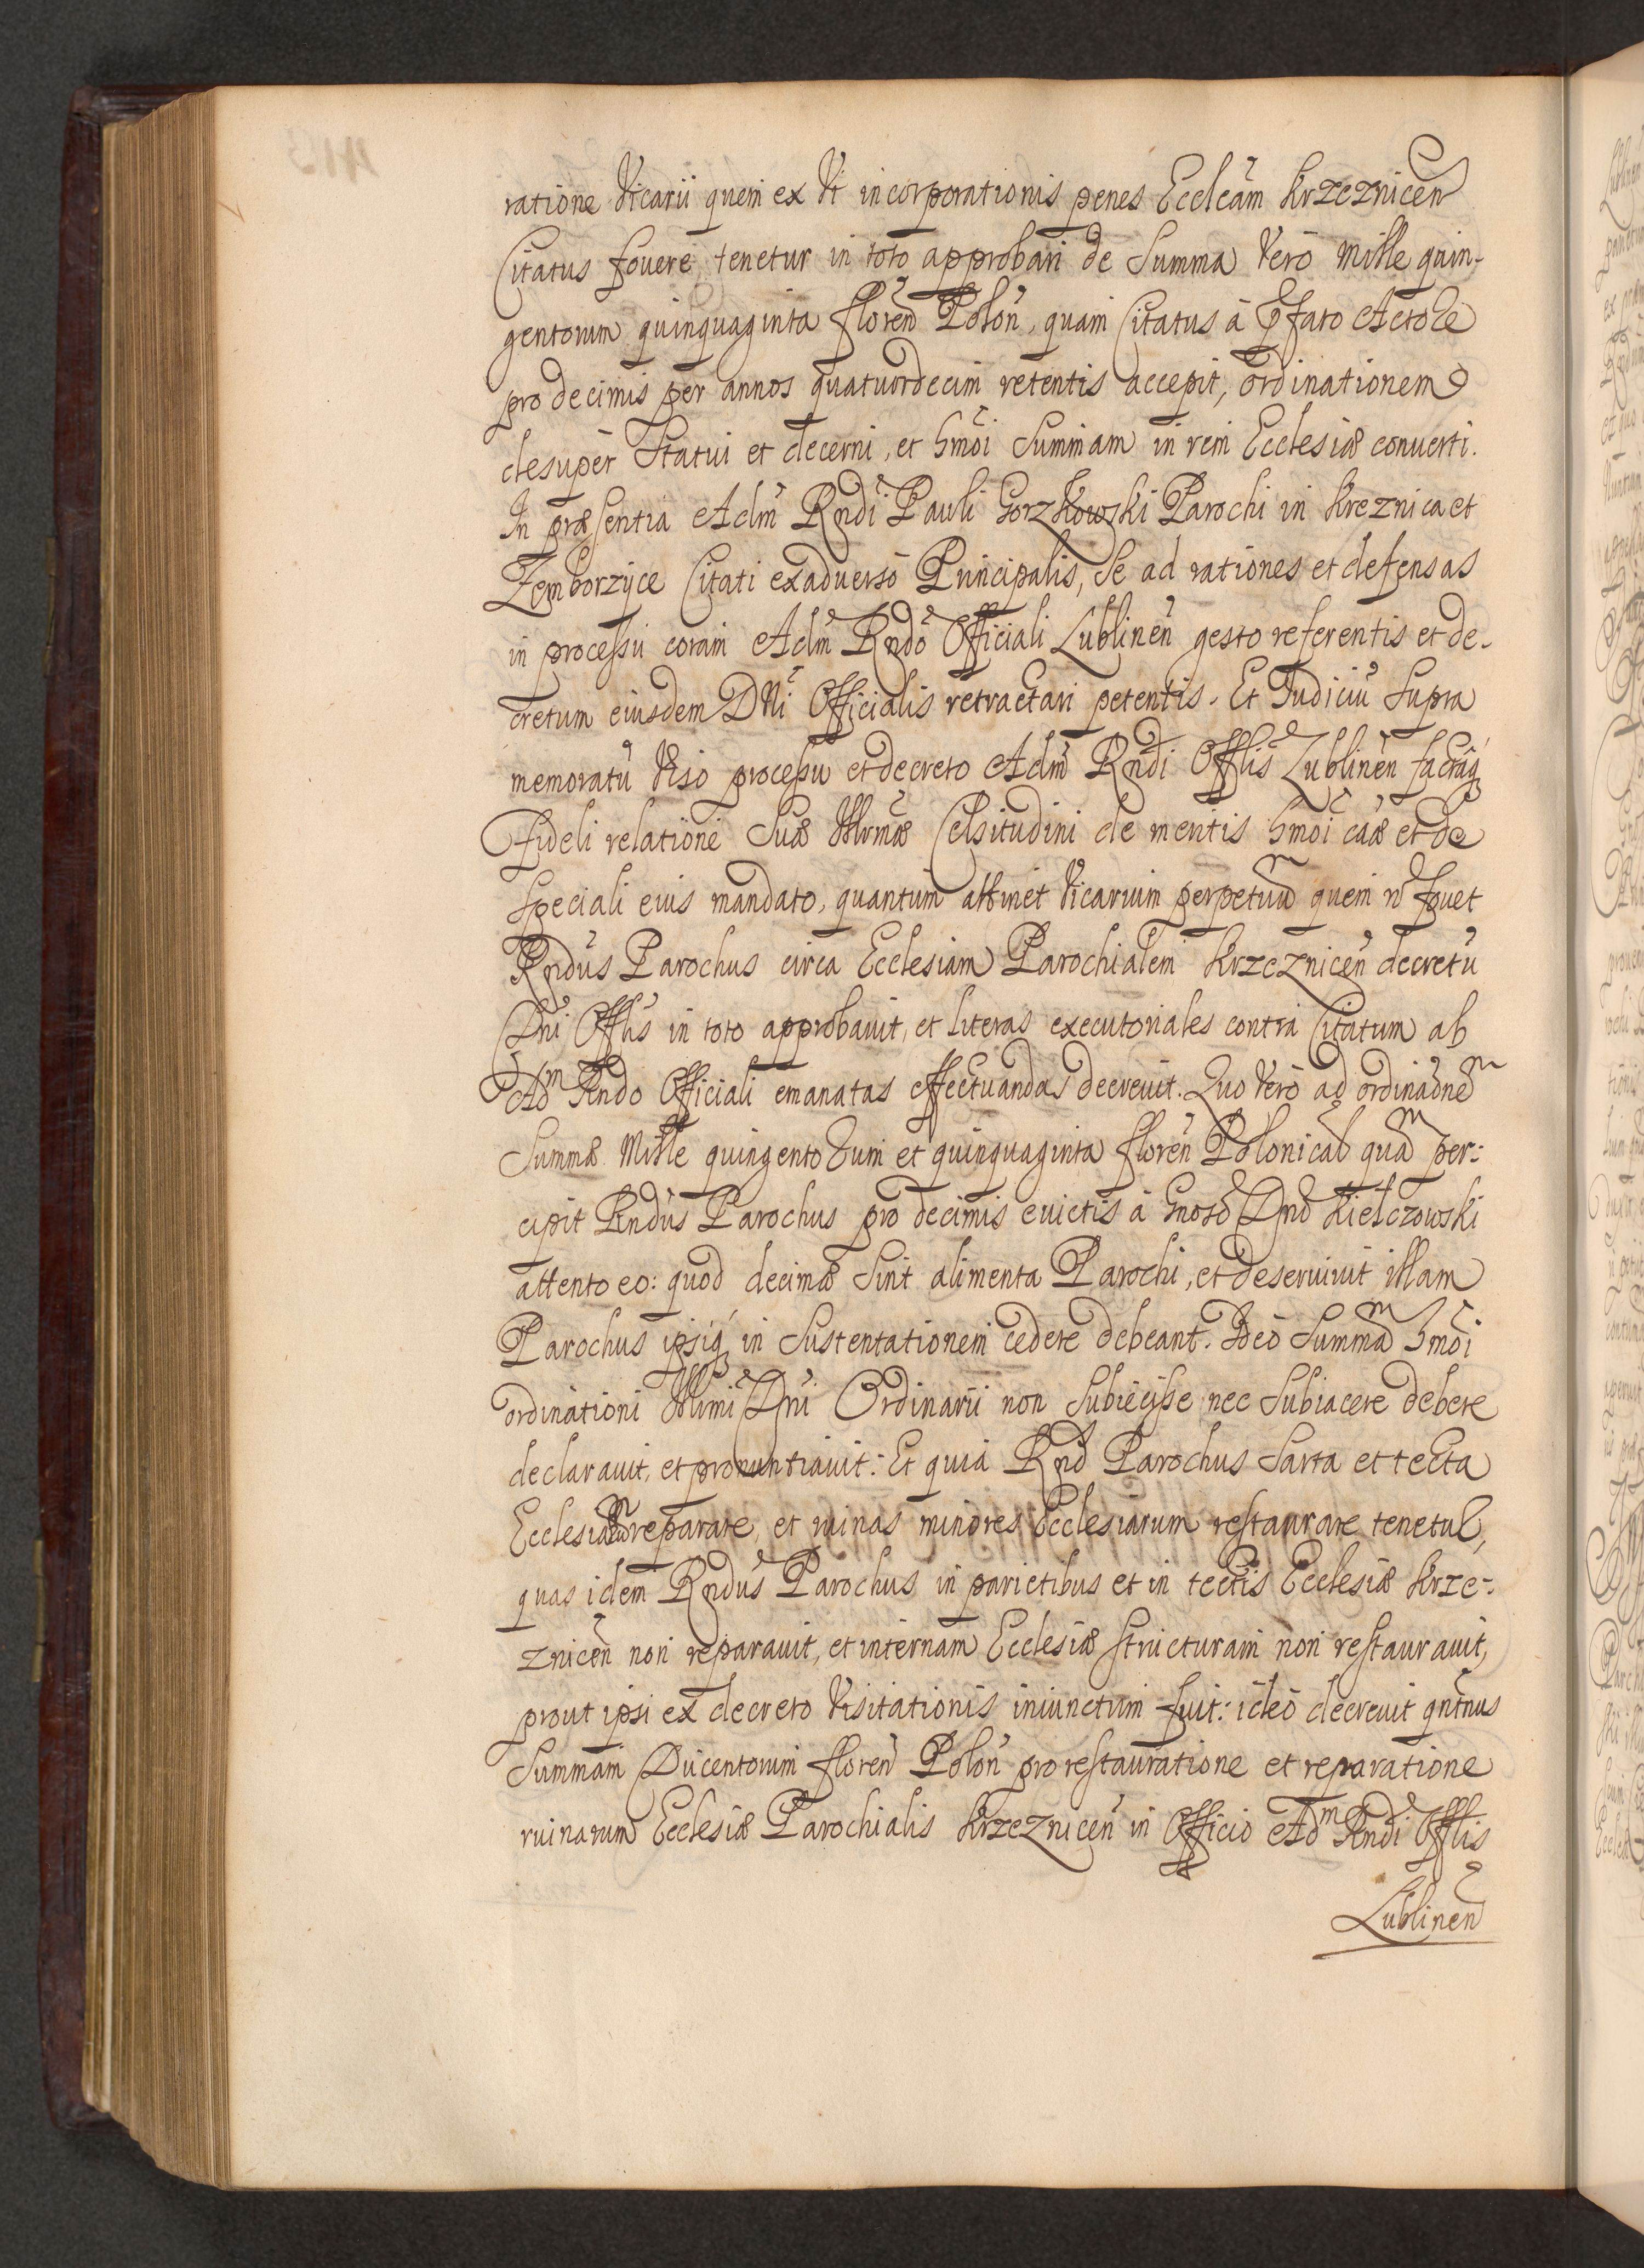 ratione Vicarii quem ex Vi incorporationis penes Eccleãm Krzeznicen̄
Citatus fouere tenetur in toto approbari de Summa Verò Mille quin-
gentorum quinquaginta floren̄ Polon̄, quam Citatus à p̄fato Actore
pro decimis per annos quatuordecim retentis accepit, ordinationem
desuper Statui et decerni, et hmõi Summam in rem Ecclesiæ conuerti.
In præsentia Adm̄ Rndi Pauli Gorzkowski Parochi in Kreznica et
Zemborzyce Citati ex aduerso Principalis, Se ad rationes et defensas
in processu coram Adm̄ Rndo Officiali Lublinen̄ gesto referentis et de-
cretum eiusdem DNi Officialis retractari petentis. Et Iudiciū Supra
memoratū Viso processu et decreto Adm̄ Rndi Offlis Lublinen̄ factáq
Fideli relatione Suæ Illrmæ Celsitudini de meritis hmõi cãæ et de
Speciali eius mandato, quantum attinet Vicarium perpetuū quem n̄ fouet
Rndus Parochus circa Ecclesiam Parochialem Krzeznicen̄ decretū
Dni Offlis in toto approbauit, et literas executoriales contra Citatum ab
Adm̄ Rndo Officiali emanatas effectuandas decreuit. Quo Verò ad ordinãonem
Summæ Mille quingentorum et quinquaginta floren̄ Polonical quam per-:
cipit Rndus Parochus pro decimis euictis à Gnoso Dno Kielczowski
attento eo: quod decimæ Sint alimenta Parochi, et deseruiuit illam
Parochus ipsiq́ in Sustentationem cedere debeant. Ideò Summam hmõi
ordinationi Illrmi Dni Ordinarii non Subiecisse nec Subiacere debere
declarauit, et pronuntiauit: Et quia Rnd Parochus Sarta et tecta
Ecclesiarum reparare, et ruinas minores Ecclesiarum restaurare tenetur,
quas idem Rndus Parochus in parietibus et in tectis Ecclesiæ Krze-:
znicen̄ non reparauit, et internam Ecclesiæ structuram non restaurauit,
prout ipsi ex decreto Visitationis iniunctum fuit: ideò decreuit qntnus
Summam Ducentorum floren̄ Polon̄ pro restauratione et reparatione
ruinarum Ecclesiæ Parochialis Krzeznicen̄ in Officio Adm̄ Rndi Offlis
Lublinen̄